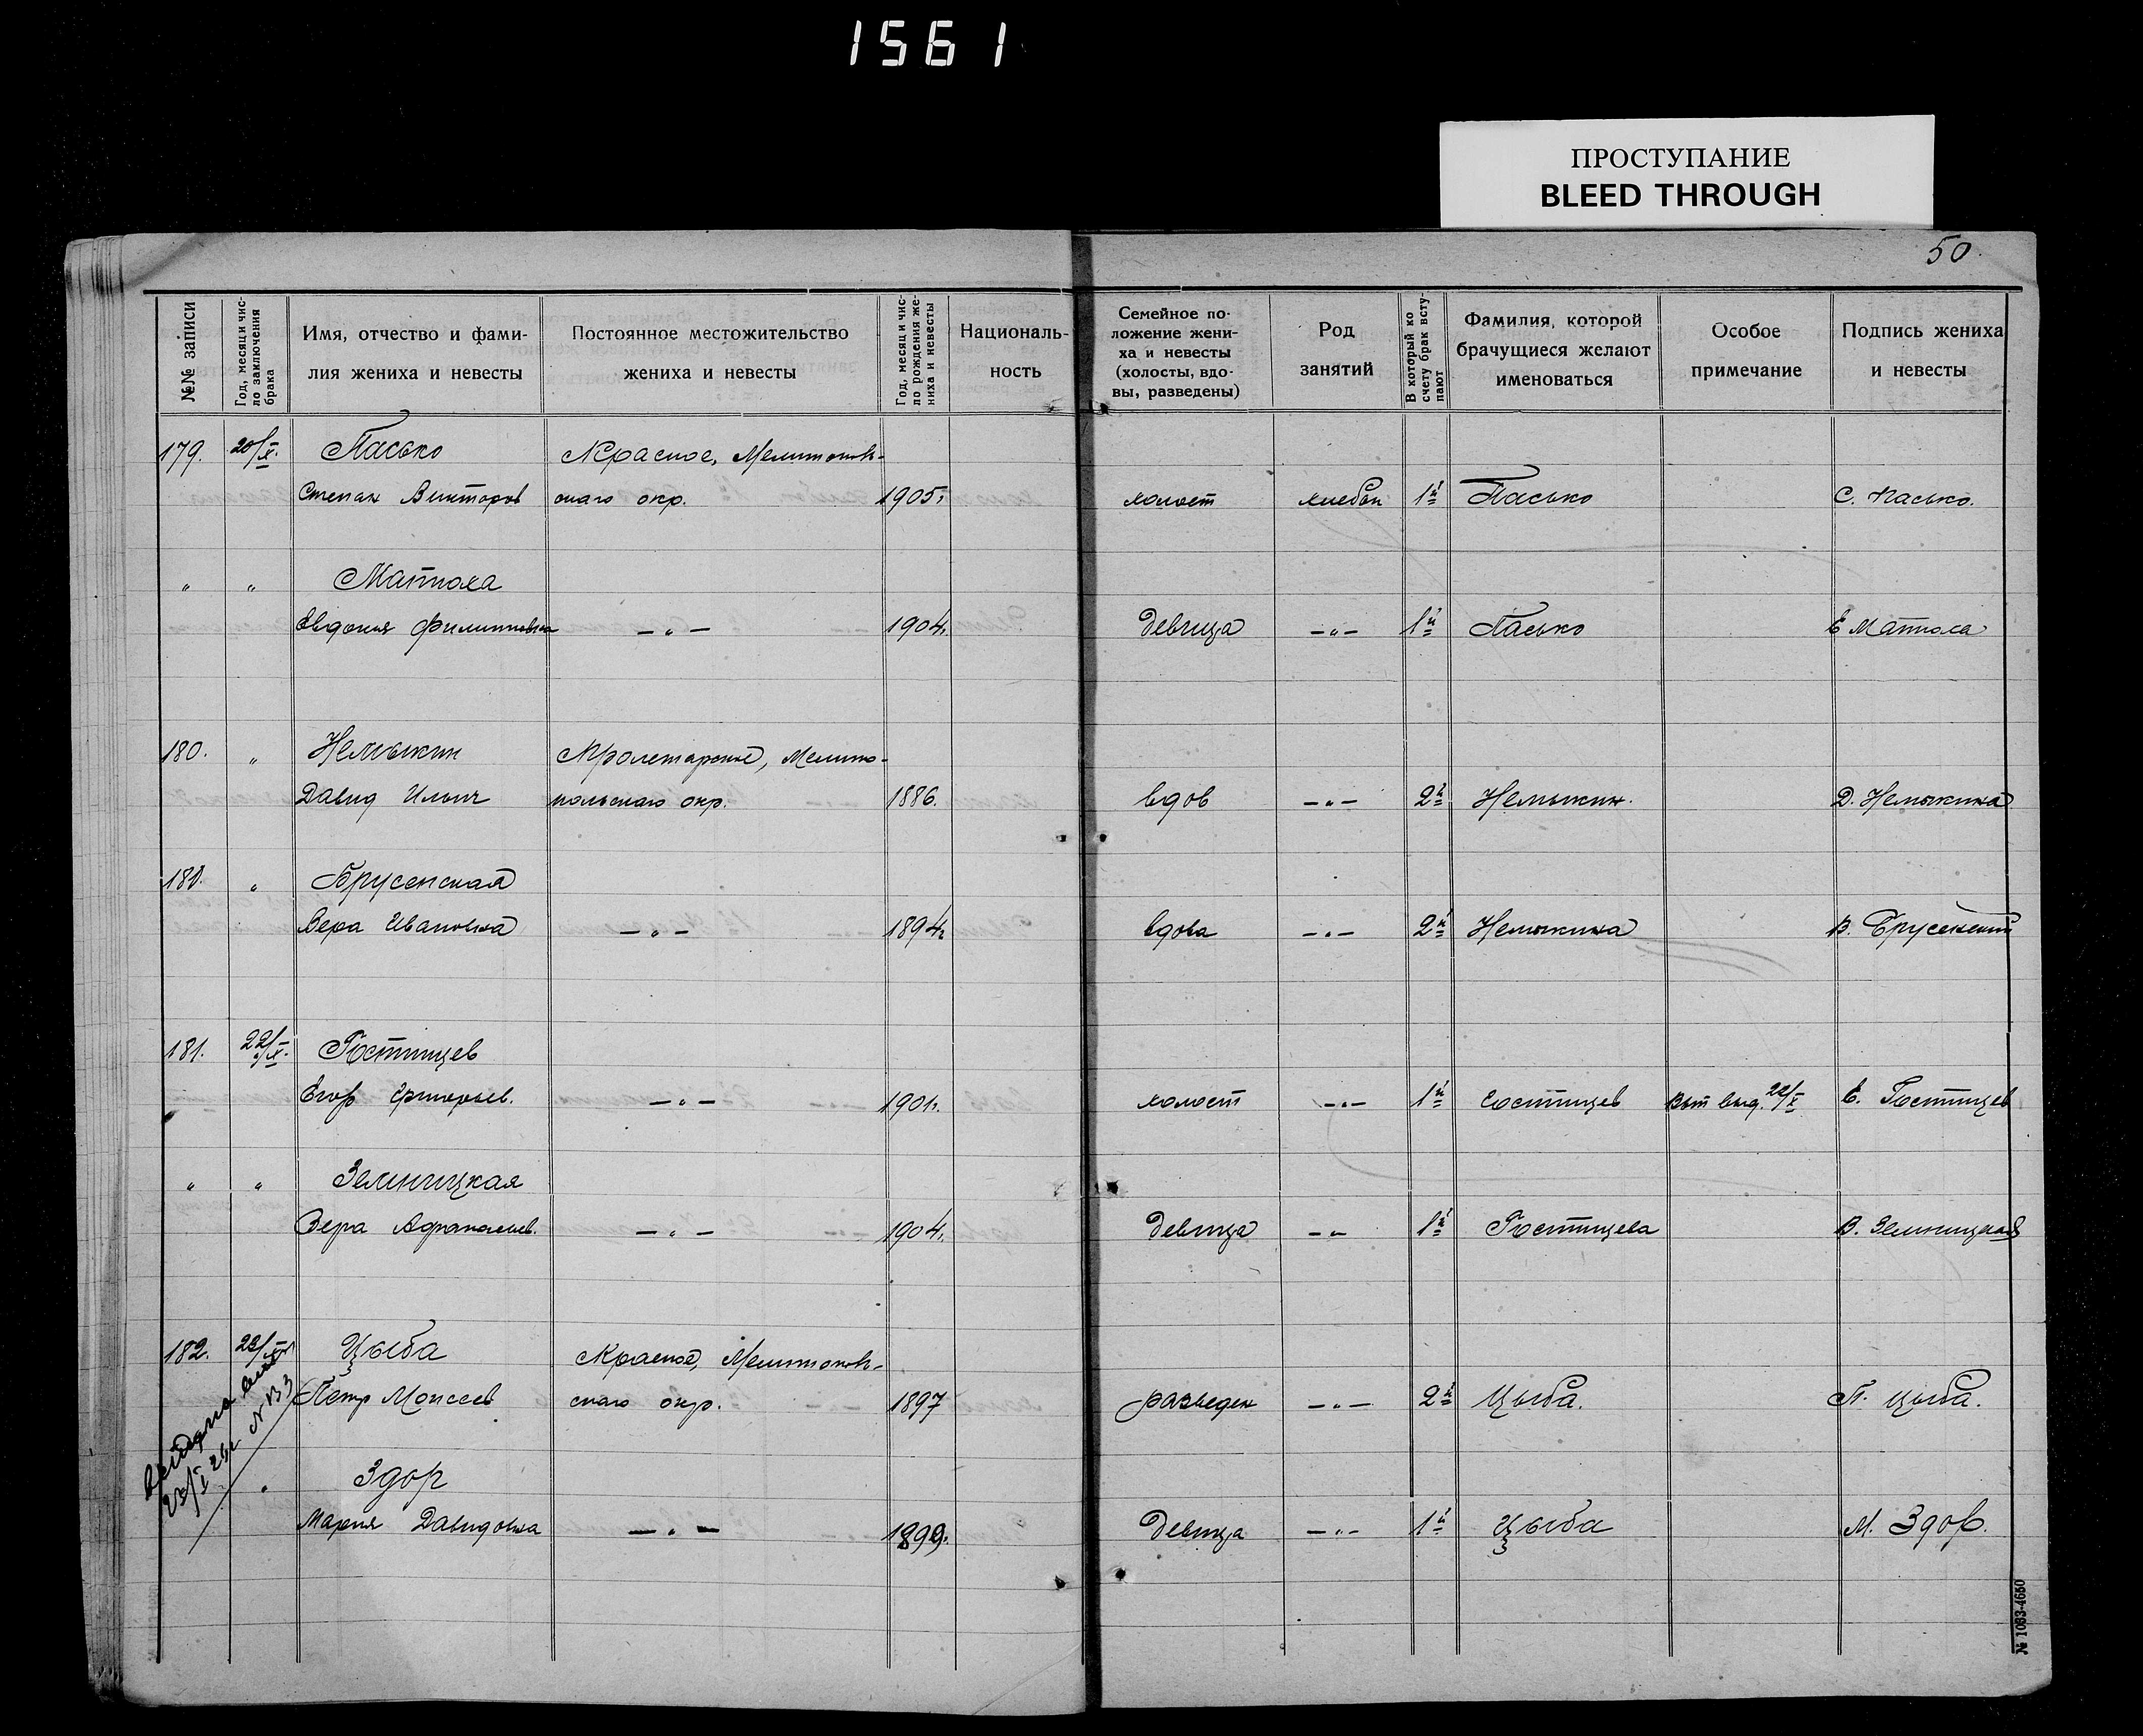 1561
ПРОСТУПАНИЕ
BLEED THROUGH
50.
№№ записи
Год, месяц и чис-
ло заключения
брака
Имя, отчество и фами-
лия жениха и невесты
Постоянное местожительство
жениха и невесты
Год, месяц и чис-
ло рождения же-
ниха и невесты
Националь-
ность
Семейное по-
ложение жени-
ха и невесты
(холосты, вдо-
вы, разведены)
Род
занятий
В который ко
счету брак всту-
пают
Фамилия, которой
брачущиеся желают
именоваться
Особое
примечание
Подпись жениха
и невесты
179. 20/X. Пасько Красное, Мелитополь-
Степан Викторов скаго окр. 1905г. холост хлебоп 1й Пасько С. Пасько.
" " Матюха
Евдокия Филипповна —"— 1904г. девица —"— 1й Пасько Е Матюха
180. " Немыкин Пролетарское, Мелито-
Давид Ильич польскаго окр. 1886. вдов —"— 2й Немыкин. Д. Немыкина
180. " Брусенская
Вера Ивановна —"— 1894г. вдова —"— 2й Немыкина В. Брусенский
181. 22/X. Гостищев
Егор Григорьев. —"— 1901г. холост —"— 1й Гостищев Вып выд. 22/X Е. Гостищев
" " Земницкая
Вера Афанасьев. —"— 1904г. девица —"— 1й Гостищева В. Земницкая
182. 22/X Цыба Красное, Мелитополь-
Петр Моисеев скаго окр. 1897 разведен —"— 2й Цыба. П. Цыба.
" Здор
Мария Давидовна —"— 1899. девица —"— 1й Цыба М. Здор.
№ 1083-4660